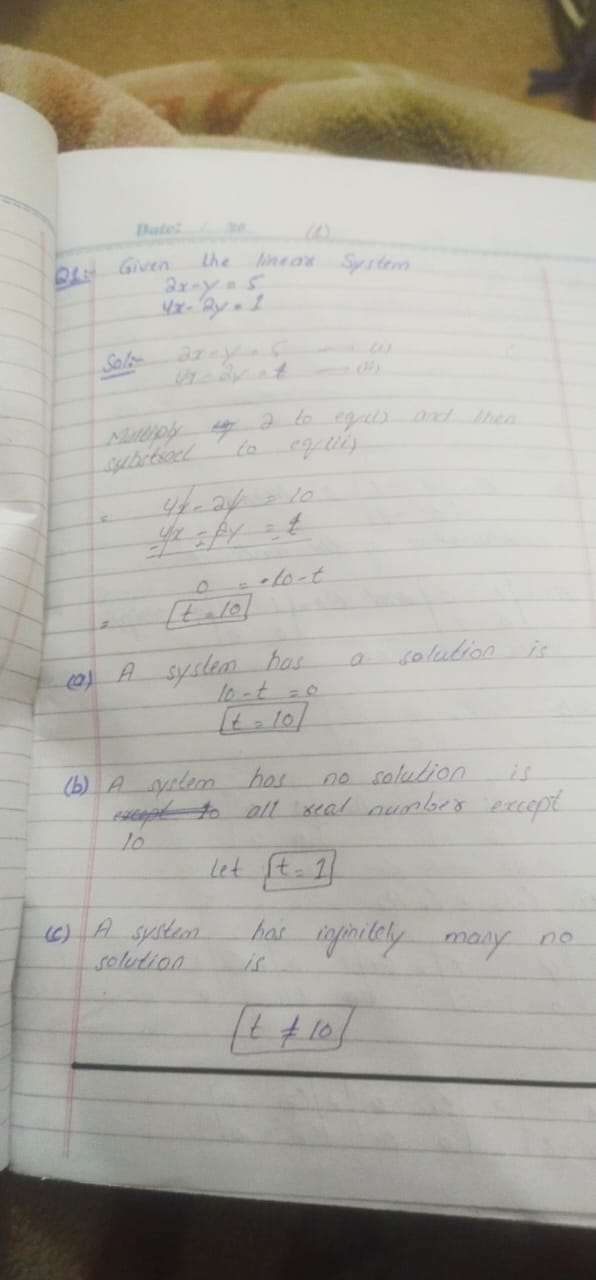 Date: / No (1)
Q1:- Given the linear System
2x-y = 5
4x-2y = 1
Sol:- 2x-y = 5 — (i)
4x-2y = t — (ii)
Multiply 2 to eq(i) and then
substract to eq(ii)
= 4x-2y = 10
4x = 2y = t
0 = 10-t
= t = 10
(a) A system has a solution is
10-t = 0
t = 10
(b) A system has no solution is
except to all real number except
10
let t = 1
(c) A system has infinitely many no
solution is
t ≠ 10